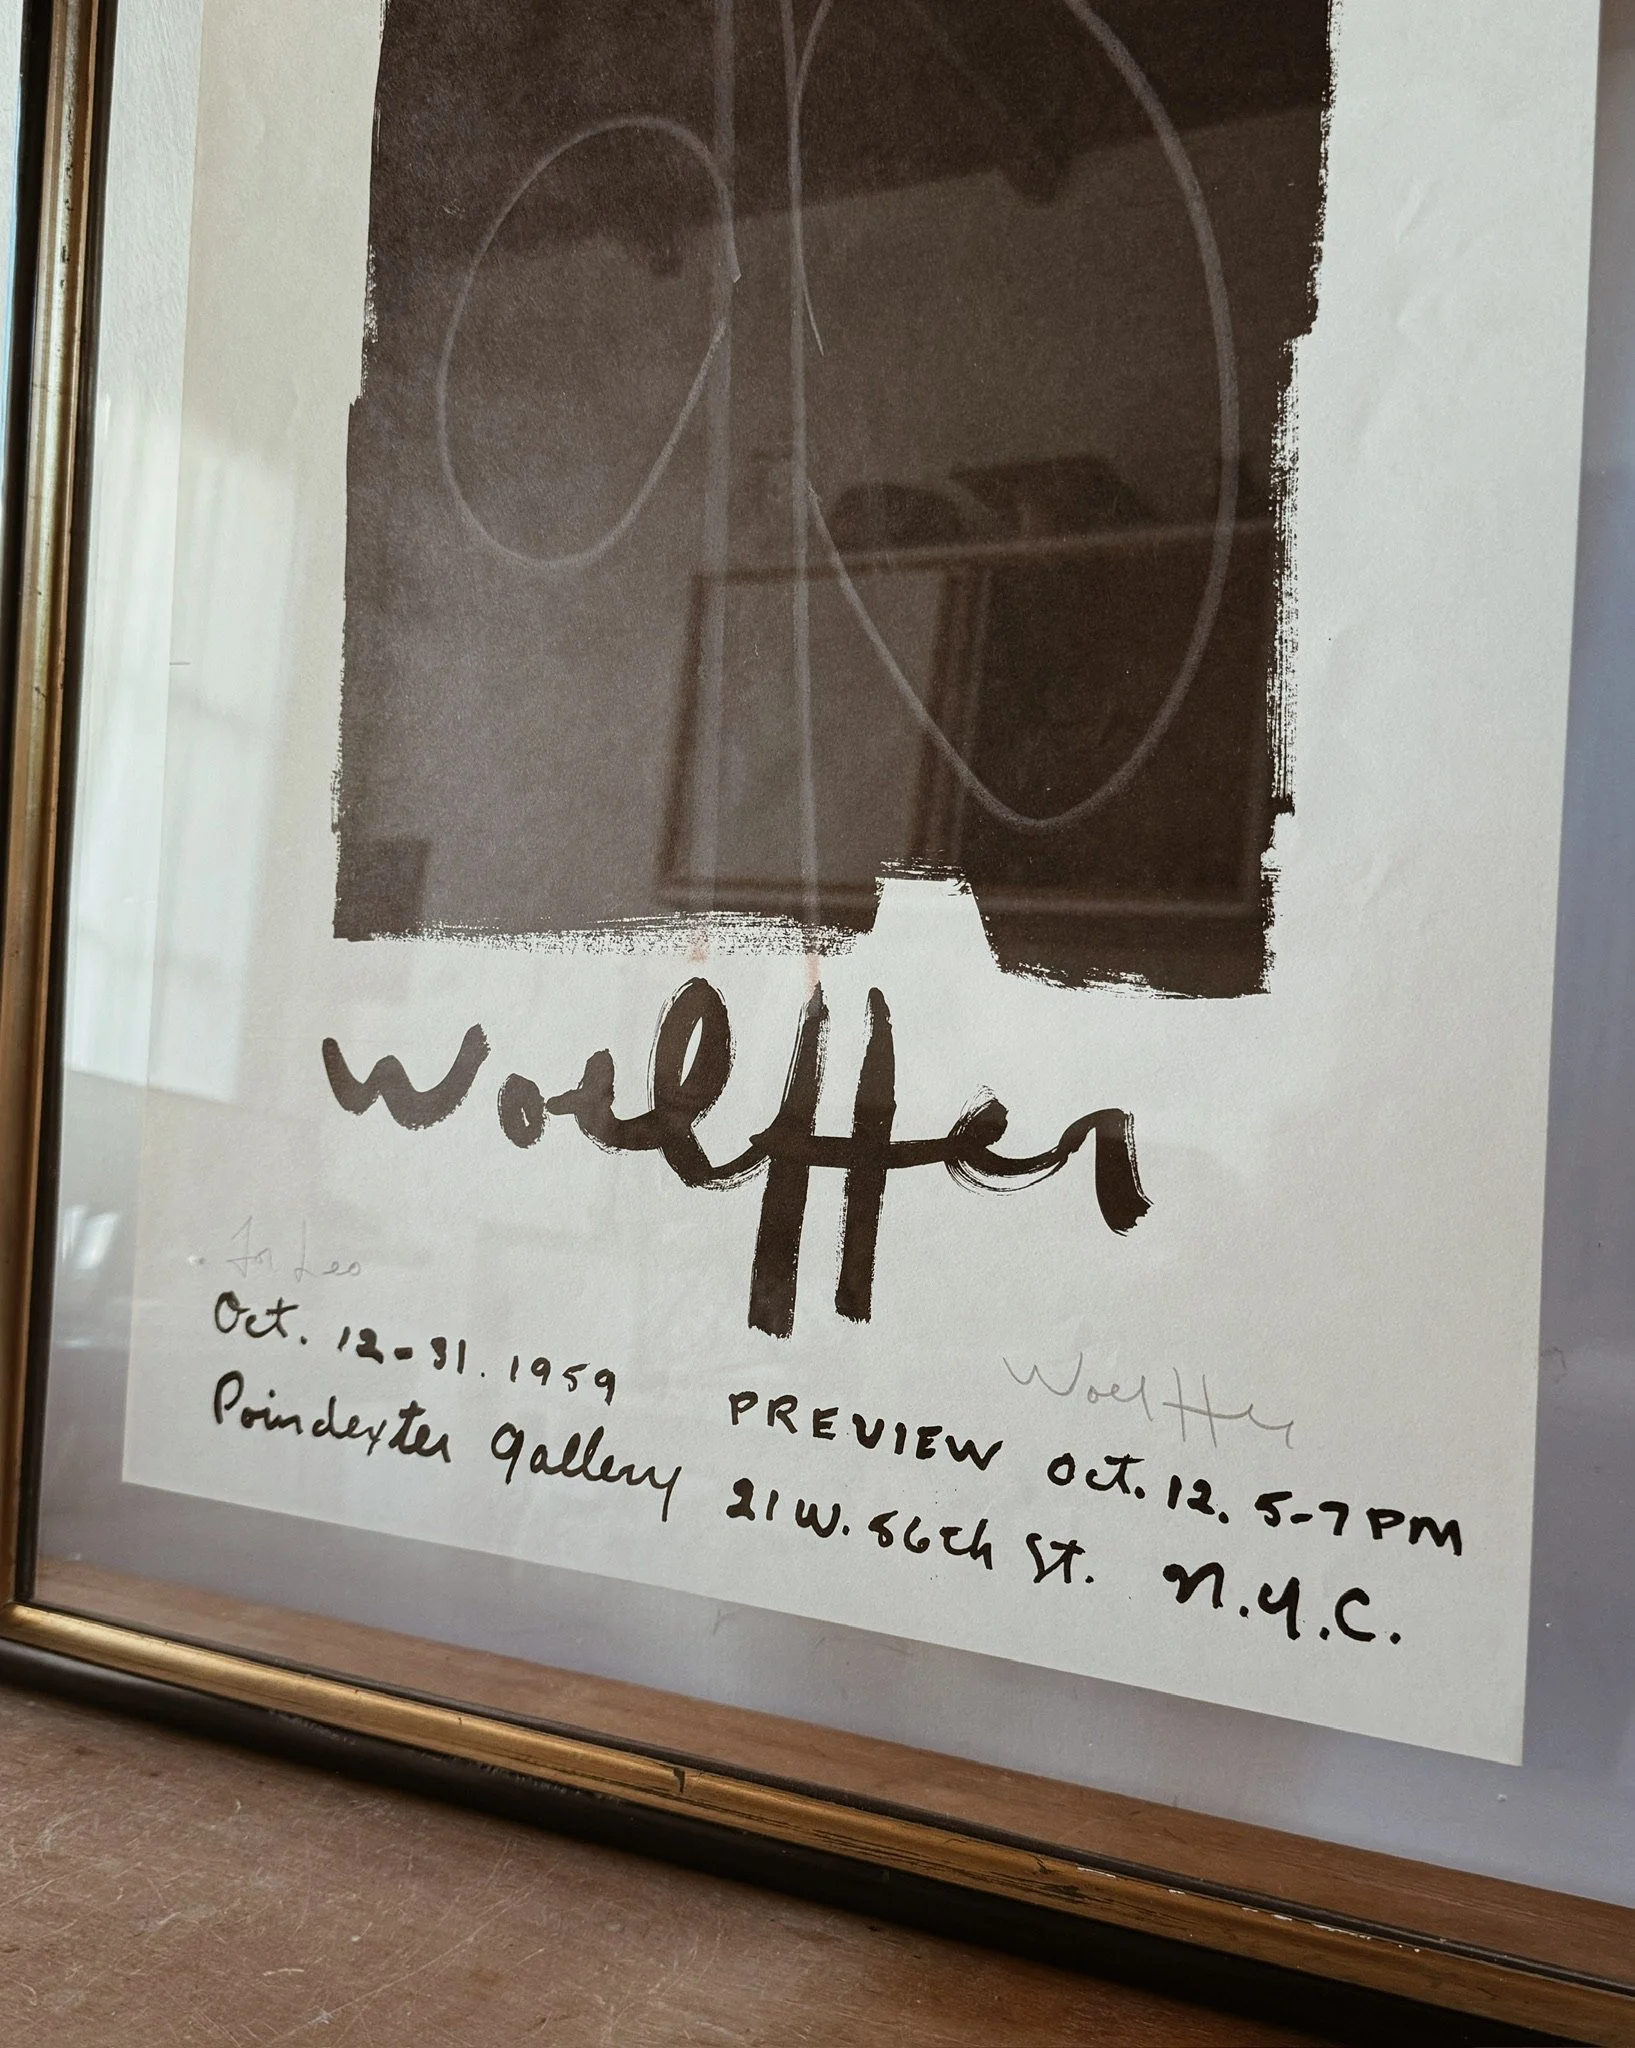 Woelffer
For Leo
Woelffer
Oct. 12-31. 1959 PREVIEW Oct. 12. 5-7 PM
Poindexter Gallery 21 W. 56th St. N.Y.C.